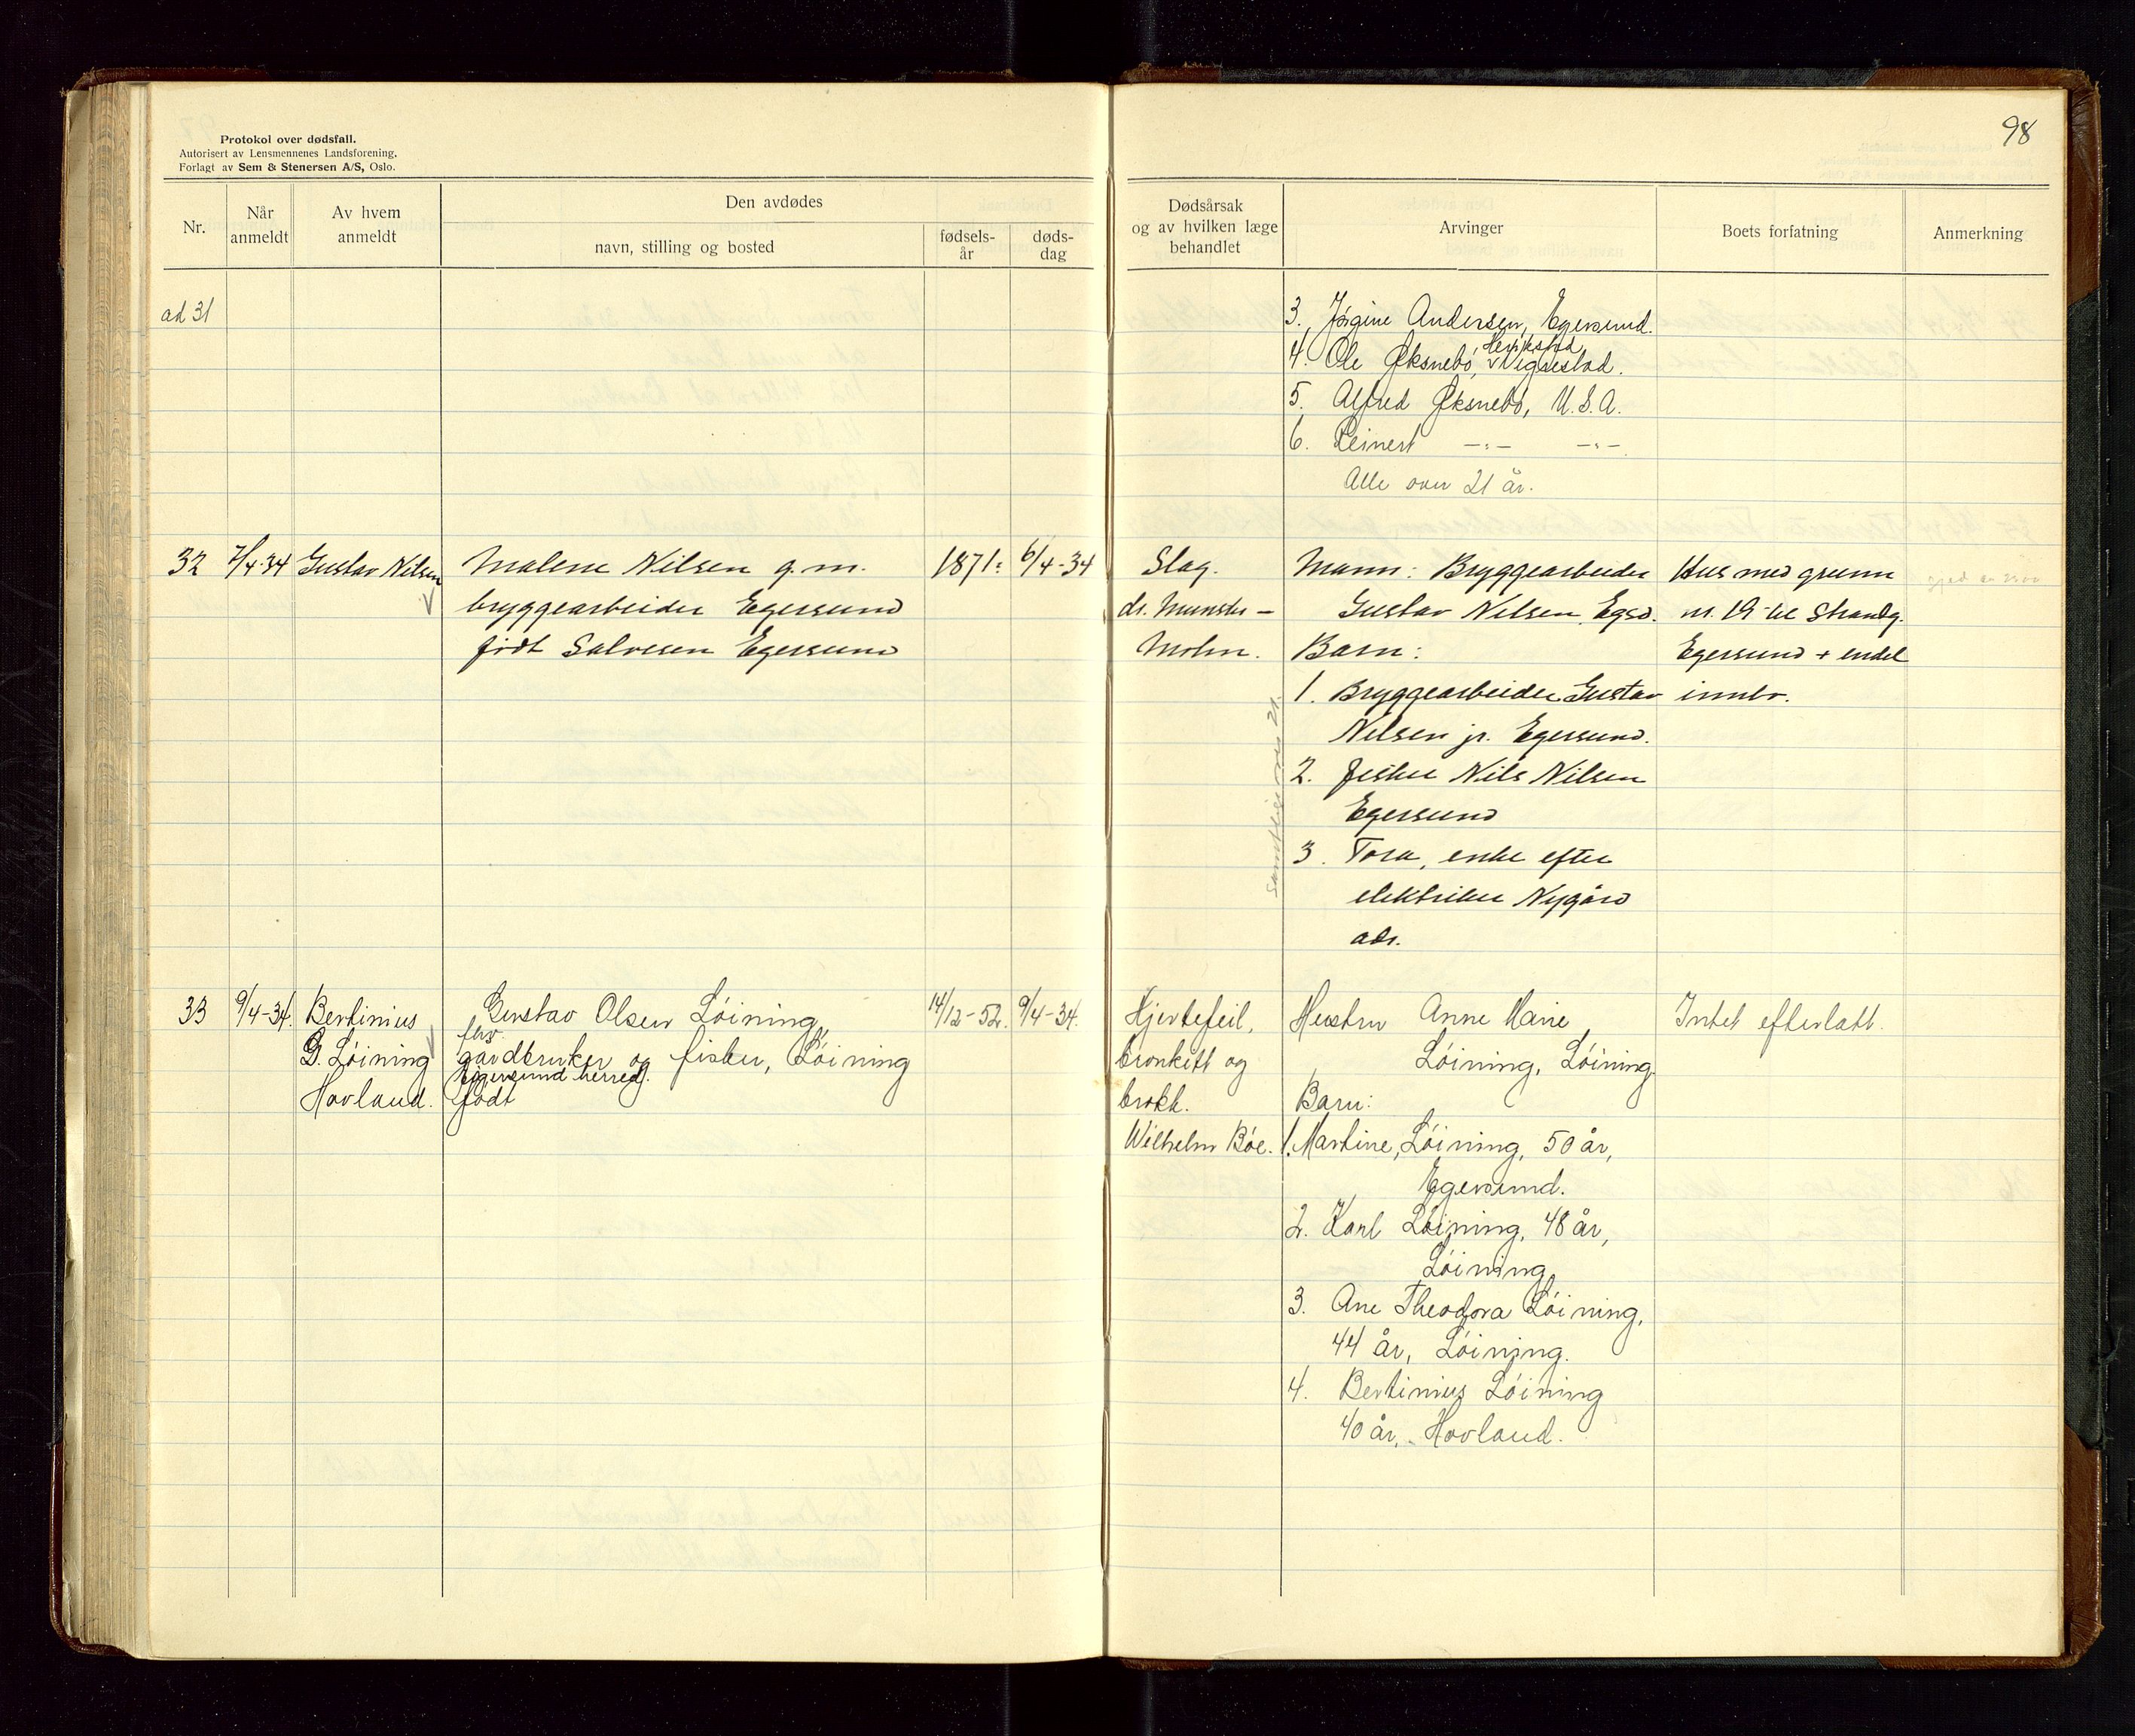 98
Protokol over dødsfall.
Autorisert av Lensmennenes Landsforening.
Forlagt av Sem & Stenersen A/S, Oslo.
Nr.
Når anmeldt
Av hvem anmeldt
Den avdødes
navn, stilling og bosted
fødsels-år
døds-dag
Dødsårsak
og av hvilken læge
behandlet
Arvinger
Boets forfatning
Anmerkning
ad 31
3. Jørgine Andersen, Egersund.
Herikstad
4. Ole Øksnebø, Vigrestad.
5. Alfred Øksnebø, U.S.A.
6. Reinert -:- -:-
Alle over 21 år.
32
7/4-34
Gustav Nilsen
Malene Nilsen g.m.
bryggearbeider Egersund
født Salvesen Egersund
1871:
6/4-34
Slag.
dr. Munster-
Mohn.
Mann: Bryggearbeider
Gustav Nilsen, Egsd.
Barn:
1. Bryggearbeider Gustav
Nilsen jr. Egersund.
2. fisker Nils Nilsen
Egersund
3. Tora, enke efter
elektriker Nygård
adr.
Samtlige over 21.
Hus med grunn
nr. 19 til Strandg.
Egersund + endel
innbo.
33
9/4-34.
Bertinius
G. Löining
Hovland.
Gustav Olsen Löining,
forv.
gardbruker og fisker, Löining
Eigersund herred.
født
14/12-52.
9/4-34.
Hjertefeil,
bronkitt og
brokk.
Wilhelm Böe.
Hustru Anne Marie
Löining, Löining.
Barn:
1. Martine, Löining, 50 år,
Egersund.
2. Karl Löining, 48 år,
Löining.
3. Ane Theodora Löining,
44 år, Löining.
4. Bertinius Löining
40 år, Hovland.
Intet efterlatt.